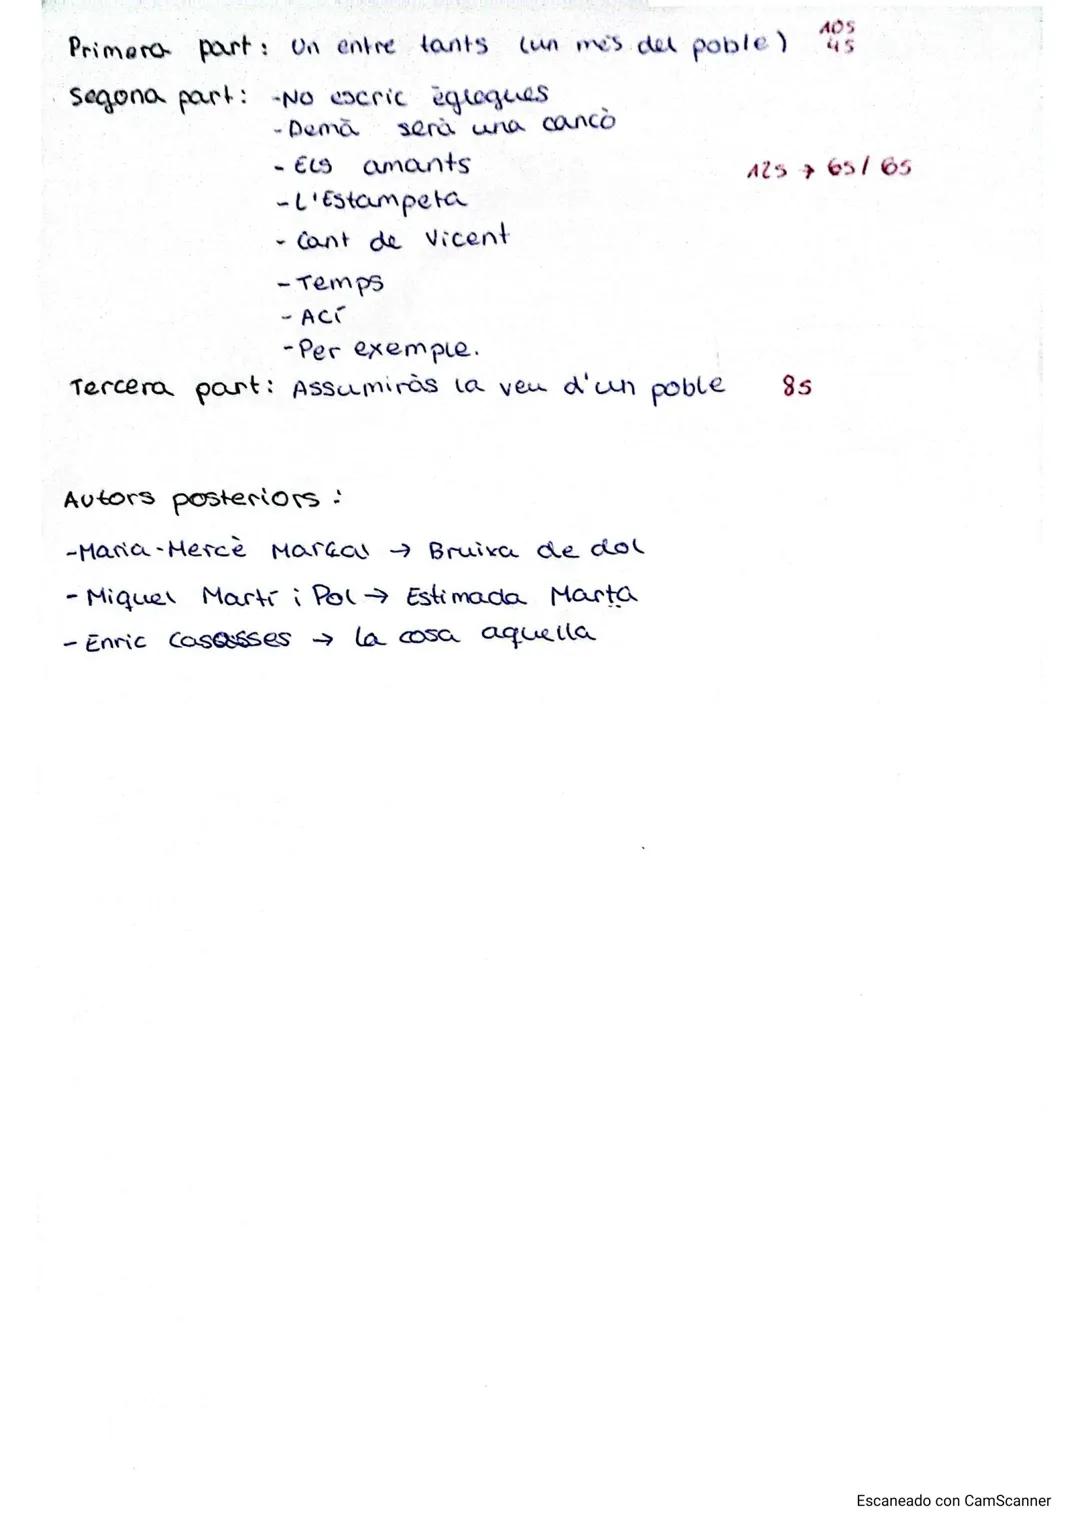 Primera part: Un entre tants (un més del poble) 10s
4s
Segona part: -No escric èglogues
-Demà serà una cancò
- Els amants 12s → 6s/6s
-L'Estampeta
- Cant de Vicent
-Temps
- Ací
-Per exemple.
Tercera part: Assumiràs la veu d'un poble 8s
Autors posteriors:
-Maria-Mercè Marçal → Bruixa de dol
- Miquel Martí i Pol → Estimada Marta
- Enric Casasses → La cosa aquella
Escaneado con CamScanner